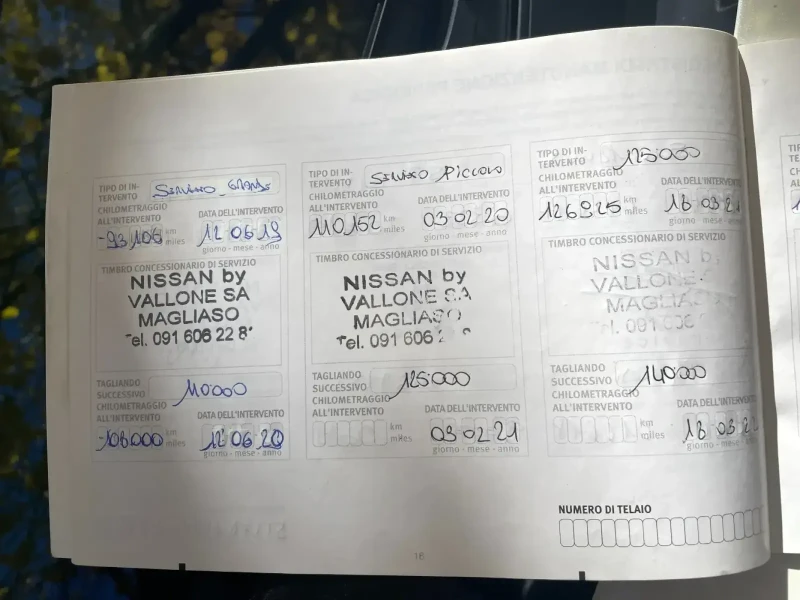 TIPO DI IN-
TERVENTO SERVIZIO GRANDE
CHILOMETRAGGIO
ALL'INTERVENTO DATA DELL'INTERVENTO
-93106 km
miles 12 06 19
giorno - mese - anno
TIMBRO CONCESSIONARIO DI SERVIZIO
NISSAN by
VALLONE SA
MAGLIASO
Tel. 091 606 22
TAGLIANDO
SUCCESSIVO 110000
CHILOMETRAGGIO
ALL'INTERVENTO DATA DELL'INTERVENTO
-108000 km
miles 12 06 20
giorno - mese - anno
TIPO DI IN-
TERVENTO SERVIZIO PICCOLO
CHILOMETRAGGIO
ALL'INTERVENTO DATA DELL'INTERVENTO
110152 km
miles 03 02 20
giorno - mese - anno
TIMBRO CONCESSIONARIO DI SERVIZIO
NISSAN by
VALLONE SA
MAGLIASO
Tel. 091 606
TAGLIANDO
SUCCESSIVO 125000
CHILOMETRAGGIO
ALL'INTERVENTO DATA DELL'INTERVENTO
km
miles 03 02 21
giorno - mese - anno
TIPO DI IN-
TERVENTO 125000
CHILOMETRAGGIO
ALL'INTERVENTO DATA DELL'INTERVENTO
126925 km
miles 18 03 21
giorno - mese - anno
TIMBRO CONCESSIONARIO DI SERVIZIO
NISSAN by
VALLONE
MAGLIASO
Tel. 091 606
TAGLIANDO
SUCCESSIVO 140000
CHILOMETRAGGIO
ALL'INTERVENTO DATA DELL'INTERVENTO
km
miles 18 03 22
giorno - mese - anno
NUMERO DI TELAIO
16